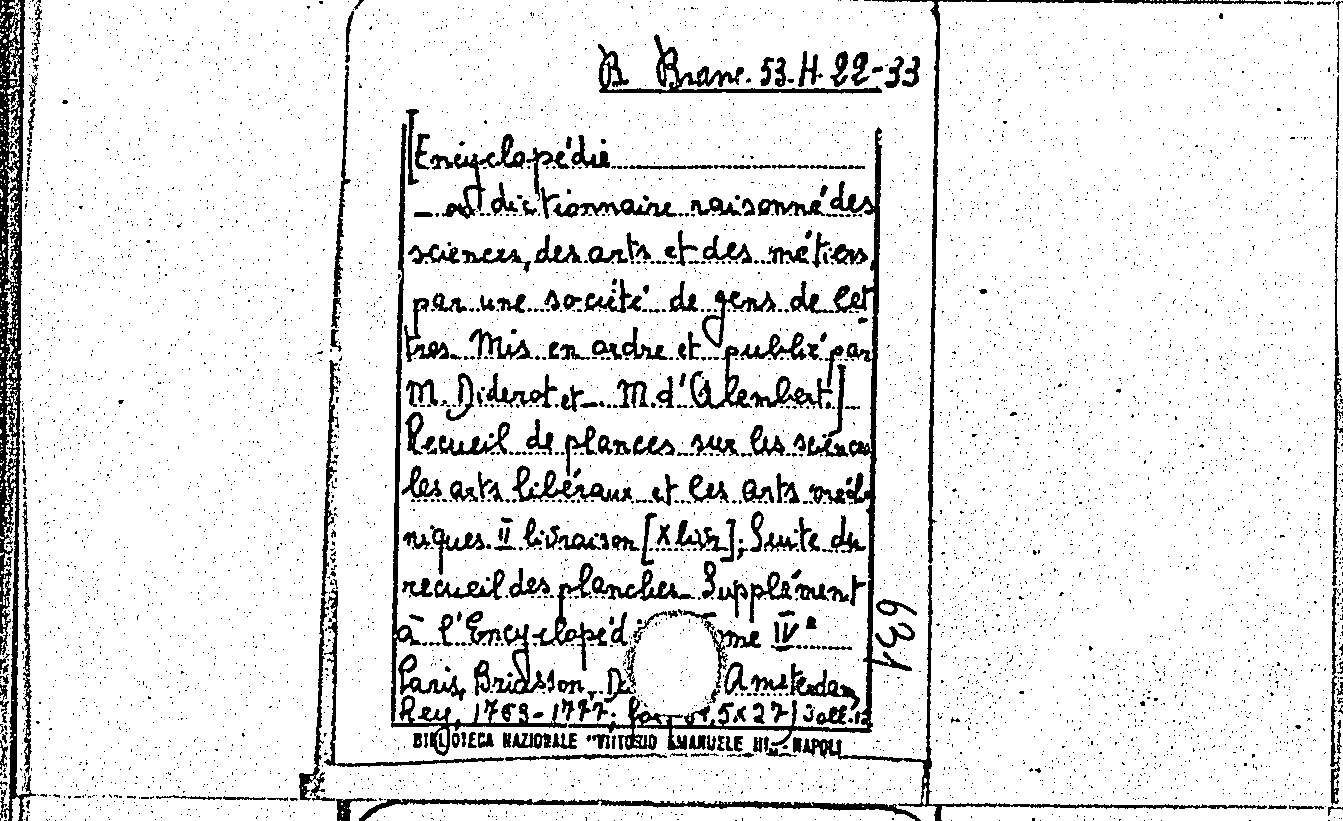 B. Branc. 53. H. 22-33
[Encyclopédie
— ou dictionnaire raisonné des
sciences, des arts et des métiers,
par une société de gens de let
tres. Mis en ordre et publié par
M. Diderot et M. d'Alembert.]
Recueil de plances sur les sciences
les arts libéraux et les arts
niques. II livraison [X livr]; Suite du
recueil des planches. Supplément
à l'Encyclopéd me IVº
Paris, Briasson, Amsterdam,
Rey, 1763-1777; 5x27)
631
BIBLIOTECA NAZIONALE "VITTORIO EMANUELE III" - NAPOLI